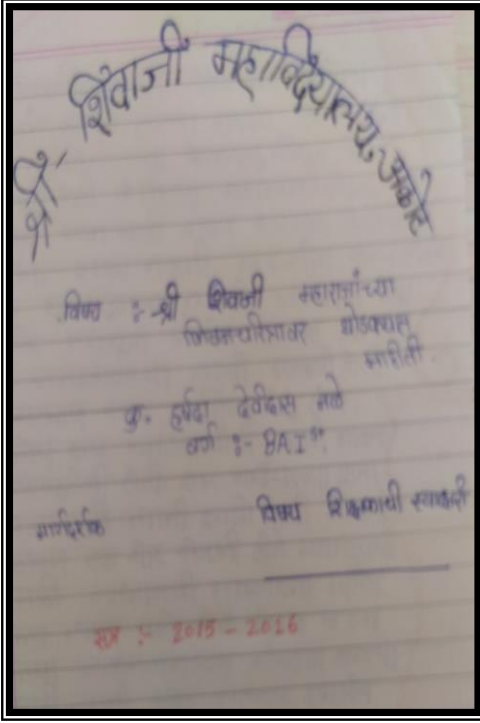 श्री शिवाजी महाविद्यालय, अकोट
विषय :- श्री शिवाजी महाराजांच्या
जिवनचरित्रावर थोडक्यात
माहीती.
कु. हर्षदा देवीदास नळे
वर्ग :- BA I st
मार्गदर्शक
विषय शिक्षकाची स्वाक्षरी
सत्र :- 2015 - 2016